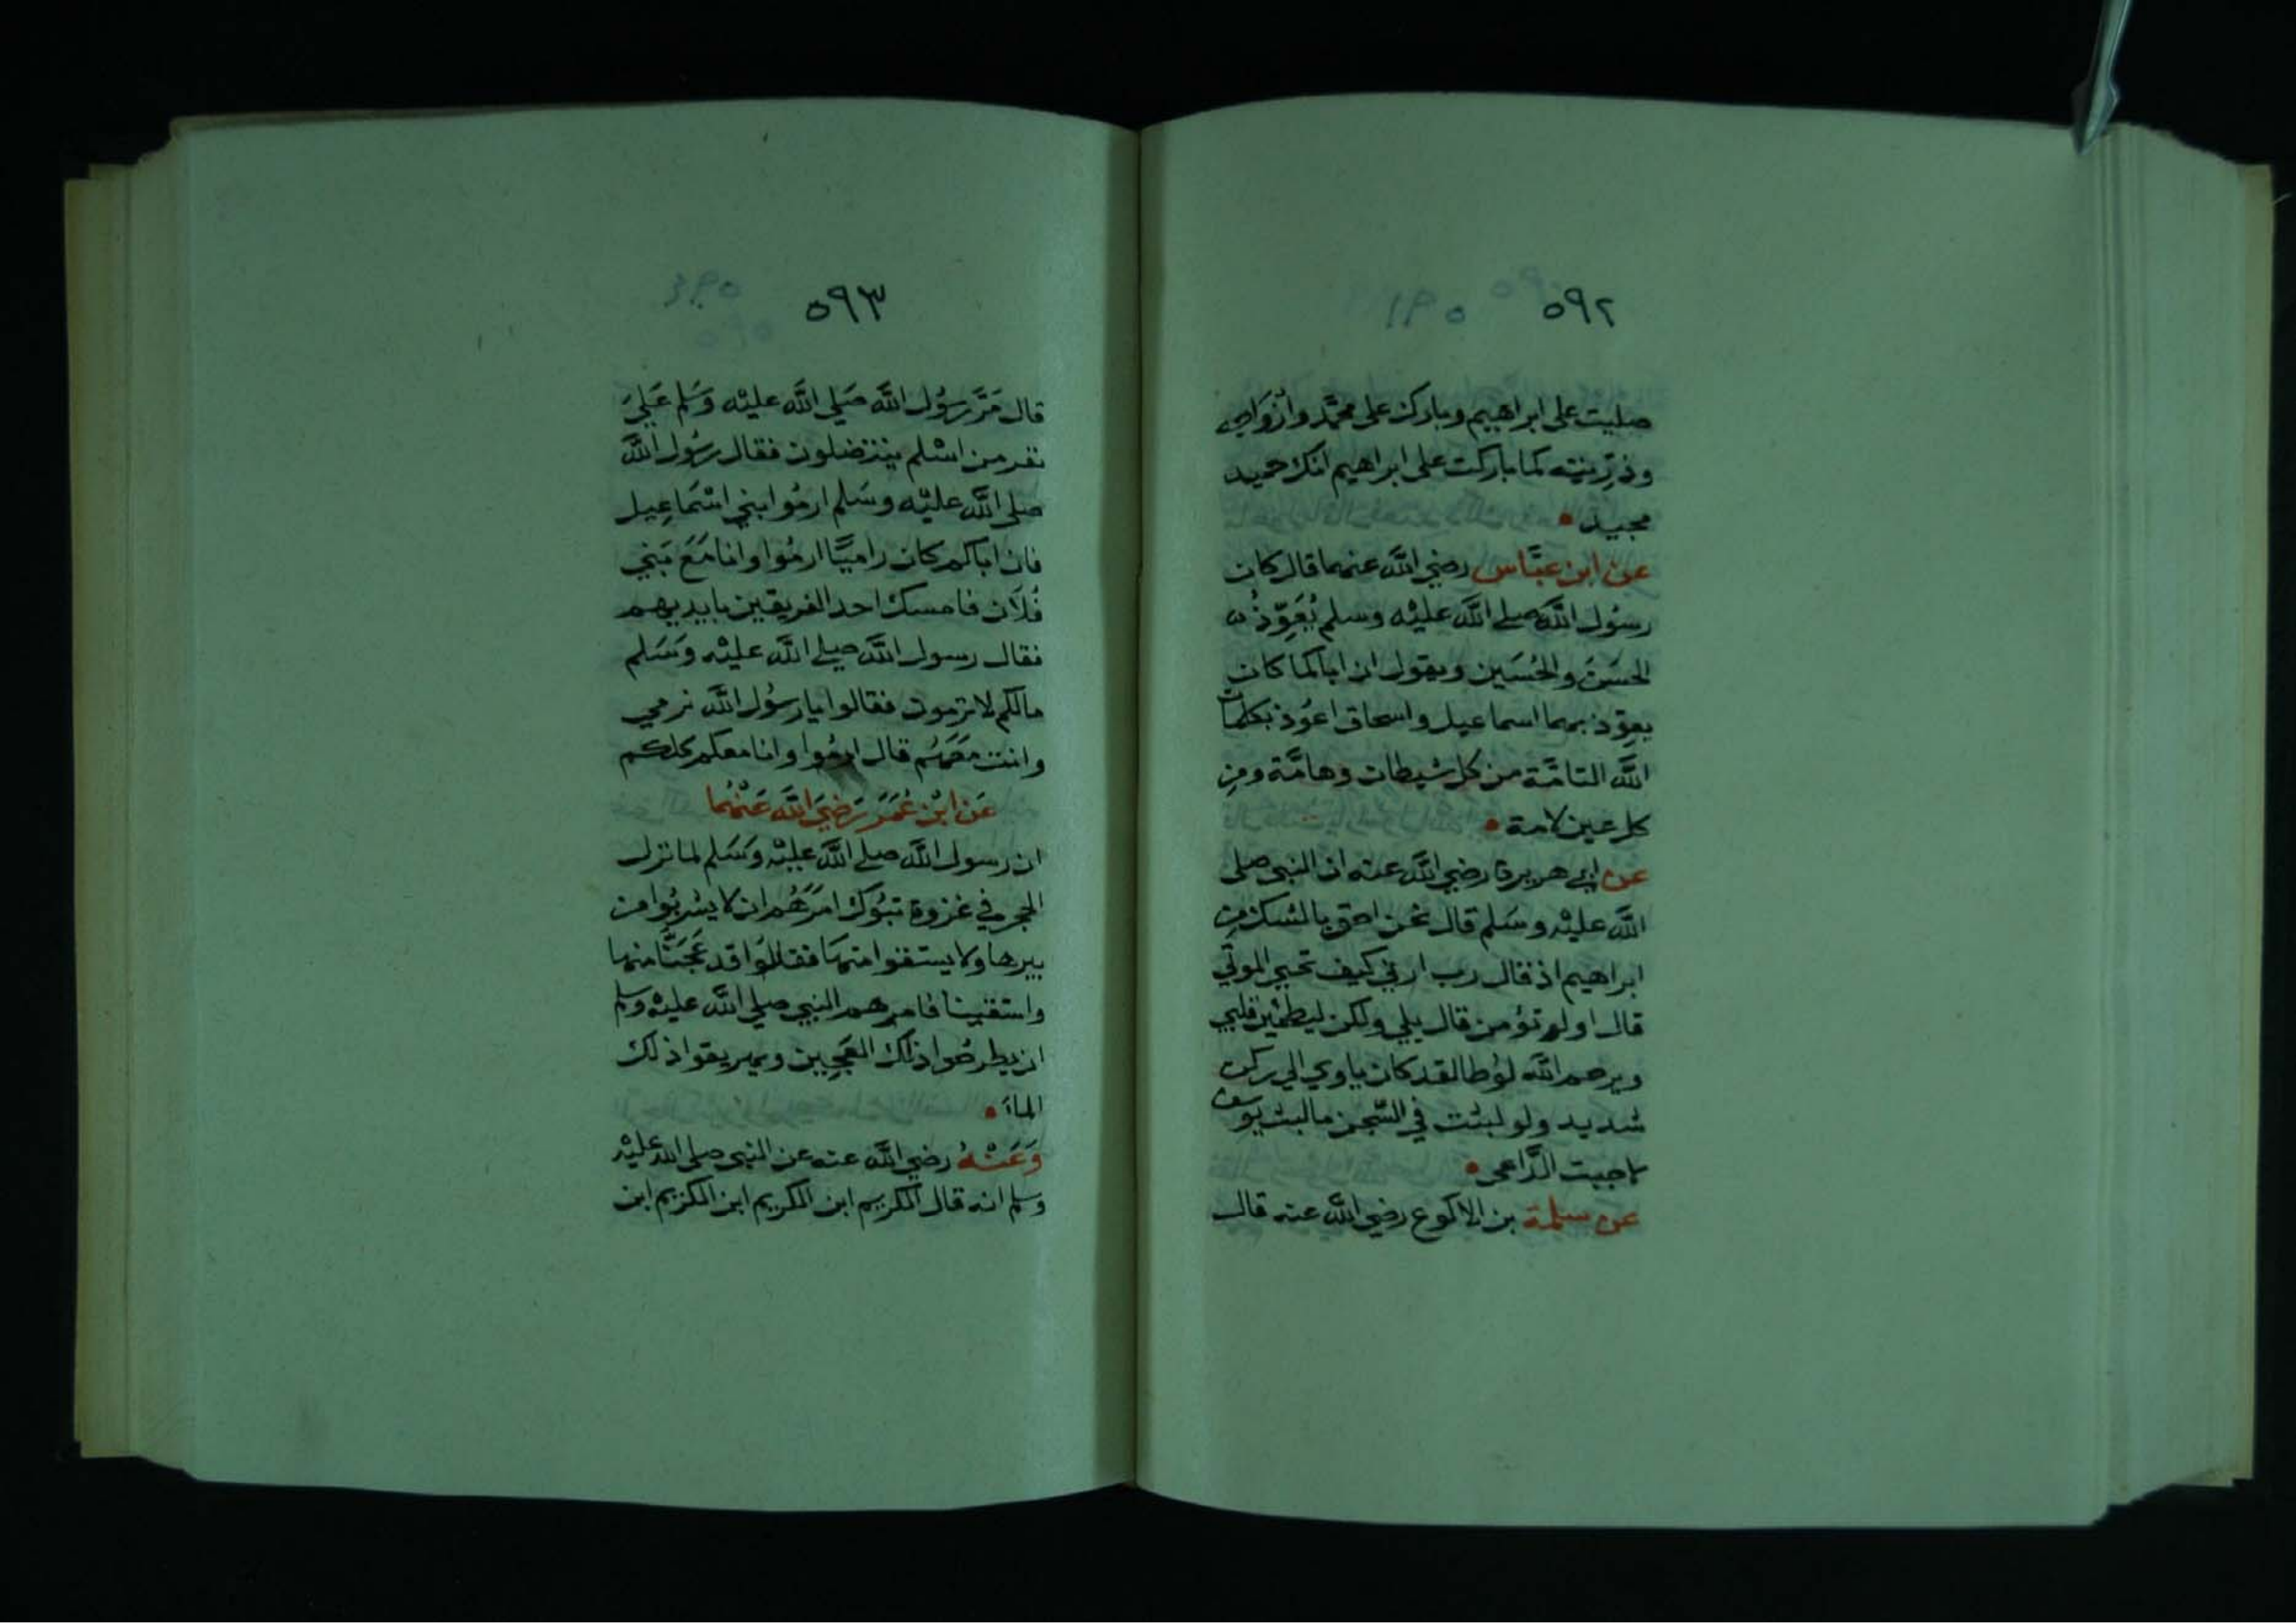 ٥٩٢
صليت على ابراهيم وبارك على محمَّد وازْوَاجه
وذرِّيته كما باركت على ابراهيم انك حميد
مجيد
عن ابن عبَّاس رضي اللّه عنهما قال كان
رسُول اللّه صلى اللّه عليْه وسلم يُعَوِّذُ
الحسَنَ والحُسَين ويقول ان اباكما كان
يعوّذ بهما اسماعيل واسحاق اعُوذ بكلمات
اللّه التامَّة من كل شيطان وهامَّة ومن
كل عين لامة
عن ابي هريرة رضي اللّه عنه ان النبي صلى
اللّه عليْه وسَلم قال نحن احق بالشك من
ابراهيم اذ قال رب ارني كيف تحيي الموتَي
قال اولم تؤمن قال بلي ولكن ليطمئن قلبي
ويرحم اللّه لوُطا لقد كان ياوي الي ركن
شديد ولو لبثت في السّجن ما لبث يوسف
لاجبت الدَّاعي
عن سلمة بن الاكوع رضي اللّه عنه قال
٥٩٣
قال مَرَّ رسُول اللَّه صَلي اللَّه عليْه وَسَلم عَلَي
نفر من اسْلم ينتضلون فقال رسُول اللَّه
صلى اللَّه عليْه وسَلم ارمُوا بني اسْمَاعِيل
فان اباكم كان راميًا ارمُوا وانا مَعَ بَني
فُلَان فامسك احد الفريقين بايديهم
فقال رسول اللَّه صلى اللَّه عليْه وَسَلم
مالكم لا ترمون فقالوا يا رسُول اللَّه نرمي
وانت معَهُم قال ارمُوا وانا معكم كلكم
عَن ابْن عُمَرَ رَضيَ اللَّه عَنْهُما
ان رسول اللَّه صلى اللَّه عليْه وَسَلم لما نزل
الحجر في غزوة تبُوك امَرَهُم ان لا يشربُوا من
بيرها ولا يستقوا منها فقالوُا قد عَجَنَّا منها
واستقينا فامرهم النبي صلي اللَّه عليْه وسلم
ان يطرحُوا ذلك العَجِين ويهريقوا ذلك
الماءَ
وَعَنْهُ رضي اللَّه عنه عن النبي صلى اللّه عليْه
وسلم انه قال الكريم ابن الكريم ابن الكريم ابن